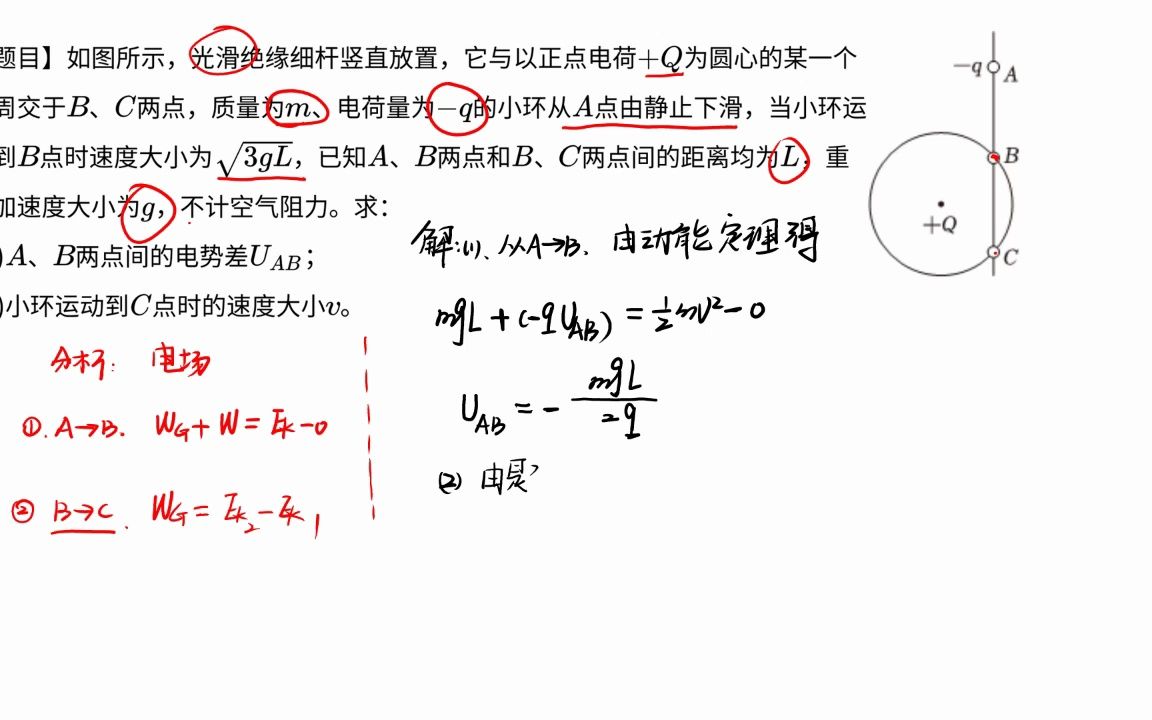 题目】如图所示，光滑绝缘细杆竖直放置，它与以正点电荷+Q为圆心的某一个
周交于B、C两点，质量为m、电荷量为-q的小环从A点由静止下滑，当小环运
到B点时速度大小为√3gL，已知A、B两点和B、C两点间的距离均为L，重
加速度大小为g，不计空气阻力。求：
)A、B两点间的电势差U_AB；
)小环运动到C点时的速度大小v。
-q A
B
+Q
C
分析：电场
①. A→B. W_G+W=E_k-0
② B→C. W_G=E_k2-E_k1
解:(1)、从A→B、由动能定理得
mgL+(-qU_AB)=1/2mv²-0
U_AB=-mgL/2q
(2) 由